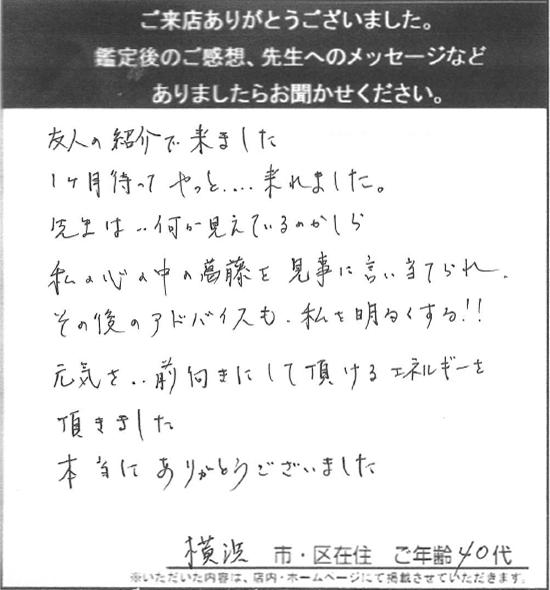 ご来店ありがとうございました。
鑑定後のご感想、先生へのメッセージなど
ありましたらお聞かせください。
友人の紹介で来ました
1ヶ月待ってやっと....来れました。
先生は..何か見えているのかしら
私の心の中の葛藤を見事に言い当てられ、
その後のアドバイスも、私を明るくする!!
元気を..前向きにして頂けるエネルギーを
頂きました
本当にありがとうございました
横浜 市・区在住 ご年齢40代
※いただいた内容は、店内・ホームページにて掲載させていただきます。